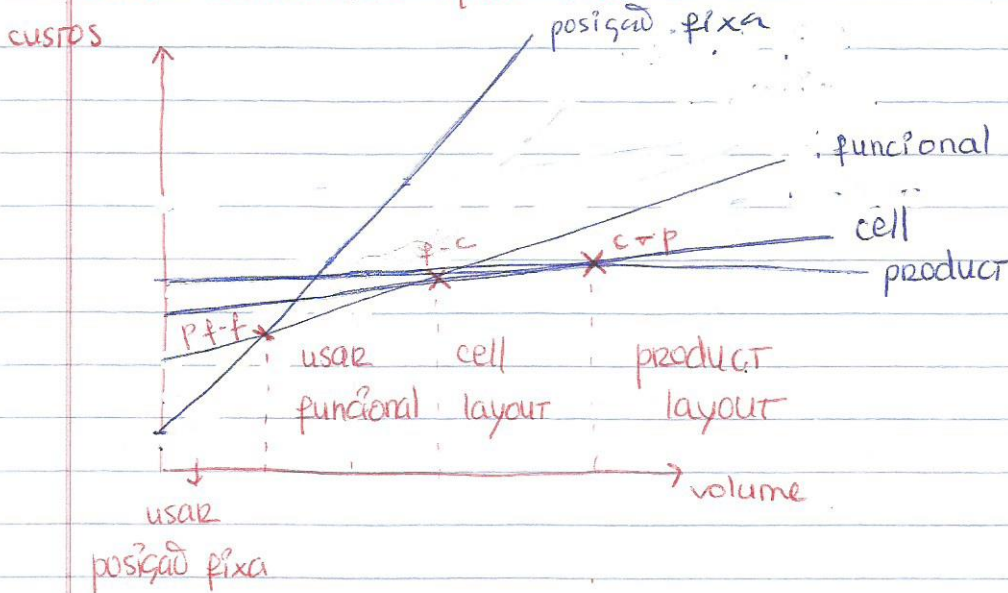 custos
posição fixa
funcional
f-c
c-p
cell
product
pf-f
usar
funcional
cell
layout
product
layout
volume
usar
posição fixa